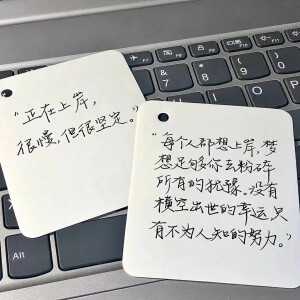 “正在上岸，
很慢，但很坚定。”
“每个人都想上岸，梦
想足够你去粉碎
所有的犹豫。没有
横空出世的幸运，只
有不为人知的努力。”
F7
F8
F9
F10
&
7
*
8
9
0
Alt